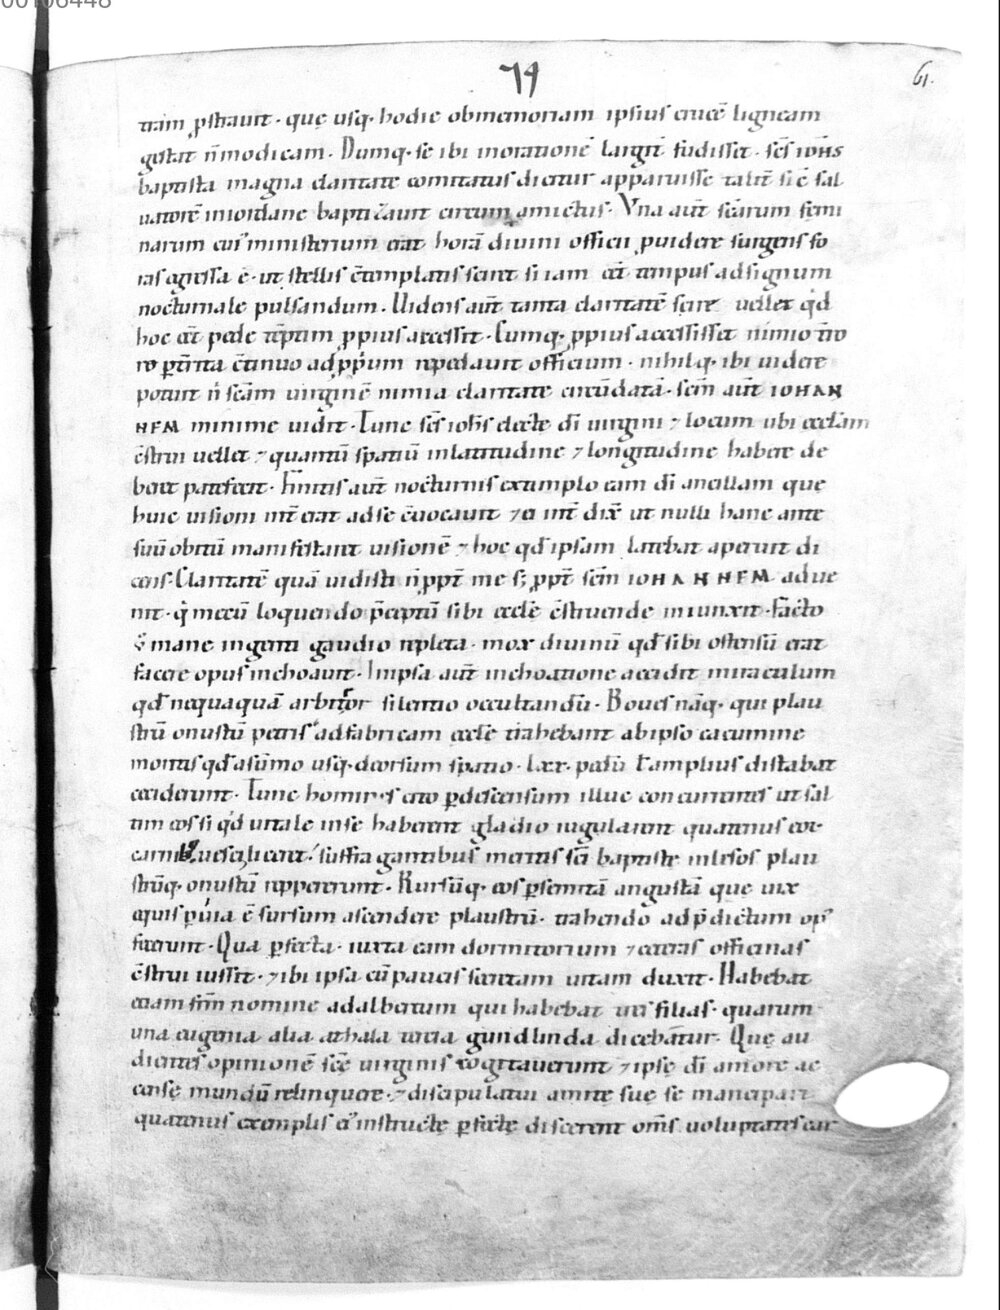 00106448
79
61.
tram pstrauit · que usq· hodie obmemoriam ipsius crucē ligneam
gestat ñmodicam · Dumq· se ibi inorationē largit̄ fudisset · scs̄ iohs̄
baptista magna claritate comitatus dicitur apparuisse talit̄ sic̄ sal
uatorē iniordane baptizauit circum amictus · Vna aut̄ scārum femi
narum cui' ministerium erat horā diuini officii puidere surgens fo
ras egressa ē · ut stellis c̄templatis sciret si iam eēt tempus adsignum
nocturnale pulsandum · Uidens aut̄ tanta claritatē scire uellet qd̄
hoc eēt pede tēptim ppius accessit · Cumq· ppius accessisset nimio t̄ro
re pt̄rita c̄tinuo ad pprium repedauit officium · nihilq· ibi uidere
potuit n̄ scām uirginē nimia claritate circūdatā · scm̄ aut̄ IOHAN
NEM minime uidit · Tunc scs̄ iohs̄ electe dī uirgini ⁊ locum ubi eccl̄am
c̄strui uellet ⁊ quantū spatiū inlatitudine ⁊ longitudine habere de
beret patefecit · Finitis aut̄ nocturnis extimplo eam dī ancillam que
huic uisioni int̄erat adse c̄uocauit ⁊ ei int̄ dix̄ ut nulli hanc ante
suū obitū manifestaret uisionē ⁊ hoc qd̄ ipsam latebat aperuit di
cens · Claritatē quā uidisti n̄ ppt̄ me s; ppt̄ scm̄ IOHANNEM adue
nit · q' mecū loquendo p̄ceptū sibi eccle c̄struende iniunxit · Facto
g° mane ingenti gaudio repleta · mox diuinū qd̄ sibi ostensū erat
facere opus inchoauit · Inipsa aut̄ inchoatione accidit miraculum
qd̄ nequaquā arbitror silentio occultandū · Boues nāq· qui plau
strū onustū petris adfabricam eccl̄e trahebant abipso cacumine
montis qd̄ asūmo usq· deorsum spatio · lxx · passū t̄ amplius distabat
ceciderunt · Tunc homines cito pdescensum illuc concurrentes ut sal
tim eos si qd̄ uitale inse haberent gladio iugularent quatinus eor
carnib; uesci liceret · suffragantibus meritis scī baptiste inlesos plau
strūq· onustū reppererunt · Rursūq· eos psemitā angustā que uix
equis puia ē sursum ascendere plaustrū · trahendo ad p̄dictum op'
fecerunt · Qua pfecta · iuxta eam dormitorium ⁊ ceteras officinas
c̄strui iussit · ⁊ ibi ipsa cū paucis sanctam uitam duxit · Habebat
etiam frm̄ nomine adalbertum qui habebat tres filias · quarum
una eugenia alia athala tercia gundlinda dicebātur · Que au
dientes opinionē scē uirginis cogitauerunt ⁊ ipse dī amore ac
cense mundū relinquere · ⁊ discipulatui amite sue se mancipare
quatinus exemplis ei' instructe pfecte discerent om̄s uoluptates car